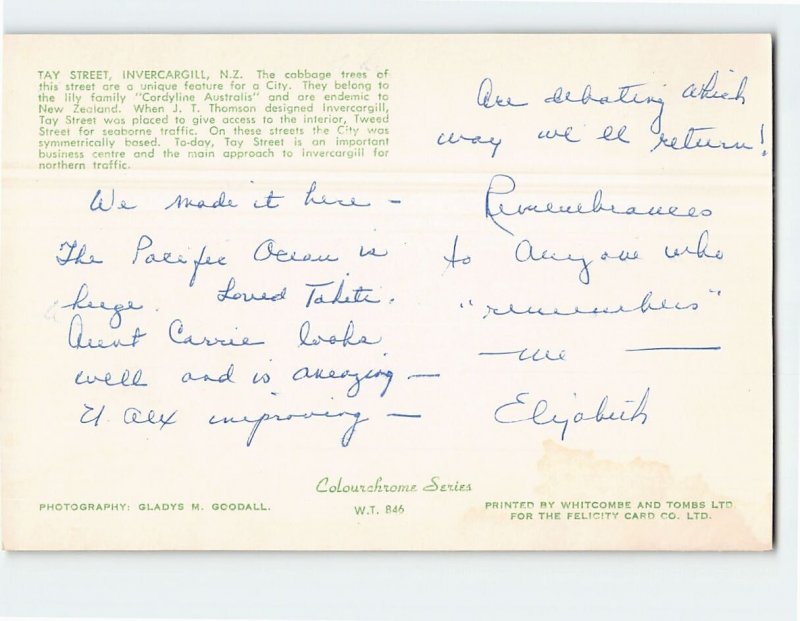 TAY STREET, INVERCARGILL, N.Z. The cabbage trees of
this street are a unique feature for a City. They belong to
the lily family "Cordyline Australis" and are endemic to
New Zealand. When J. T. Thomson designed Invercargill,
Tay Street was placed to give access to the interior, Tweed
Street for seaborne traffic. On these streets the City was
symmetrically based. To-day, Tay Street is an important
business centre and the main approach to Invercargill for
northern traffic.
We made it here —
The Pacific Ocean is
huge. Loved Tahiti.
Aunt Carrie looks
well and is amazing —
U. Alex improving —
Are debating which
way we'll return!
Remembrances
to anyone who
"remembers"
— me —
Elizabeth
Colourchrome Series
PHOTOGRAPHY: GLADYS M. GOODALL.
W.T. 846
PRINTED BY WHITCOMBE AND TOMBS LTD.
FOR THE FELICITY CARD CO. LTD.